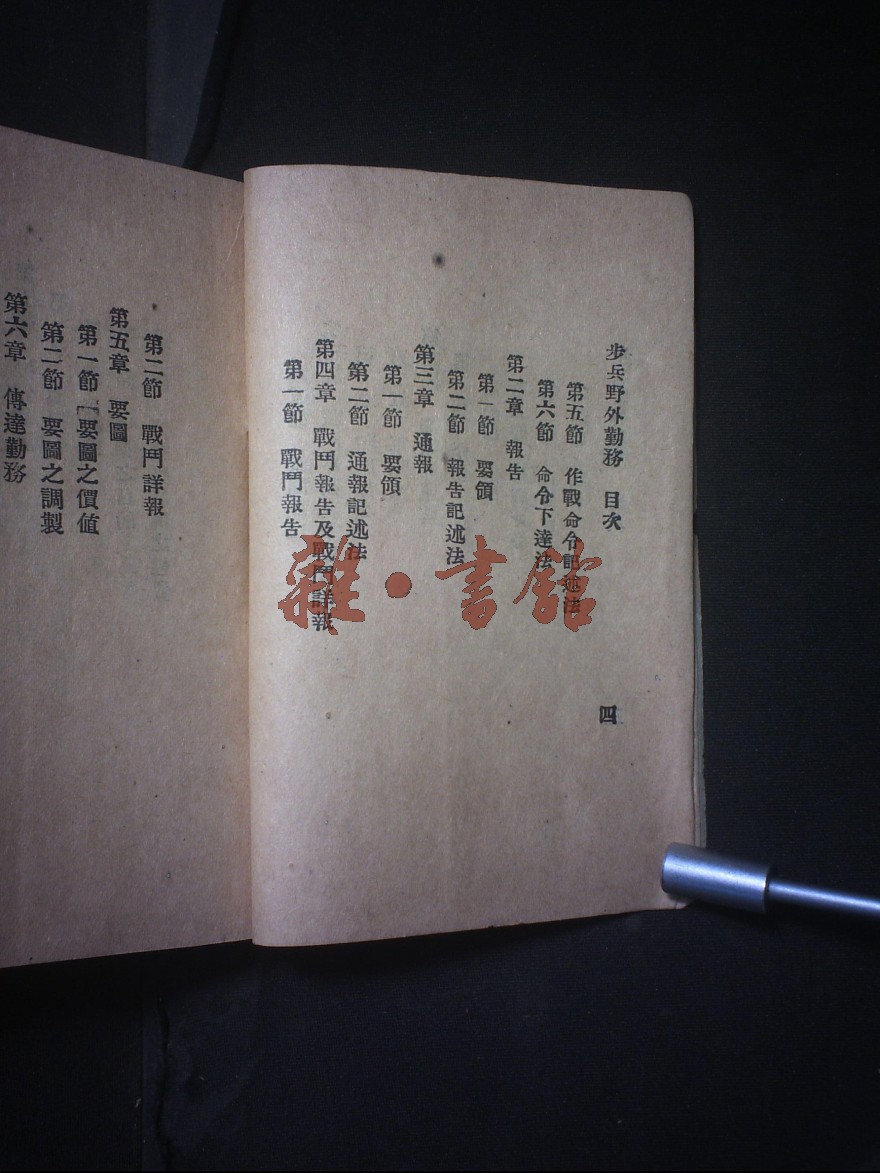 步兵野外勤務 目次
四
第五節 作戰命令記述法
第六節 命令下達法
第二章 報告
第一節 要領
第二節 報告記述法
第三章 通報
第一節 要領
第二節 通報記述法
第四章 戰鬥報告及戰鬥詳報
第一節 戰鬥報告
第二節 戰鬥詳報
第五章 要圖
第一節 要圖之價值
第二節 要圖之調製
第六章 傳達勤務
雜·書館